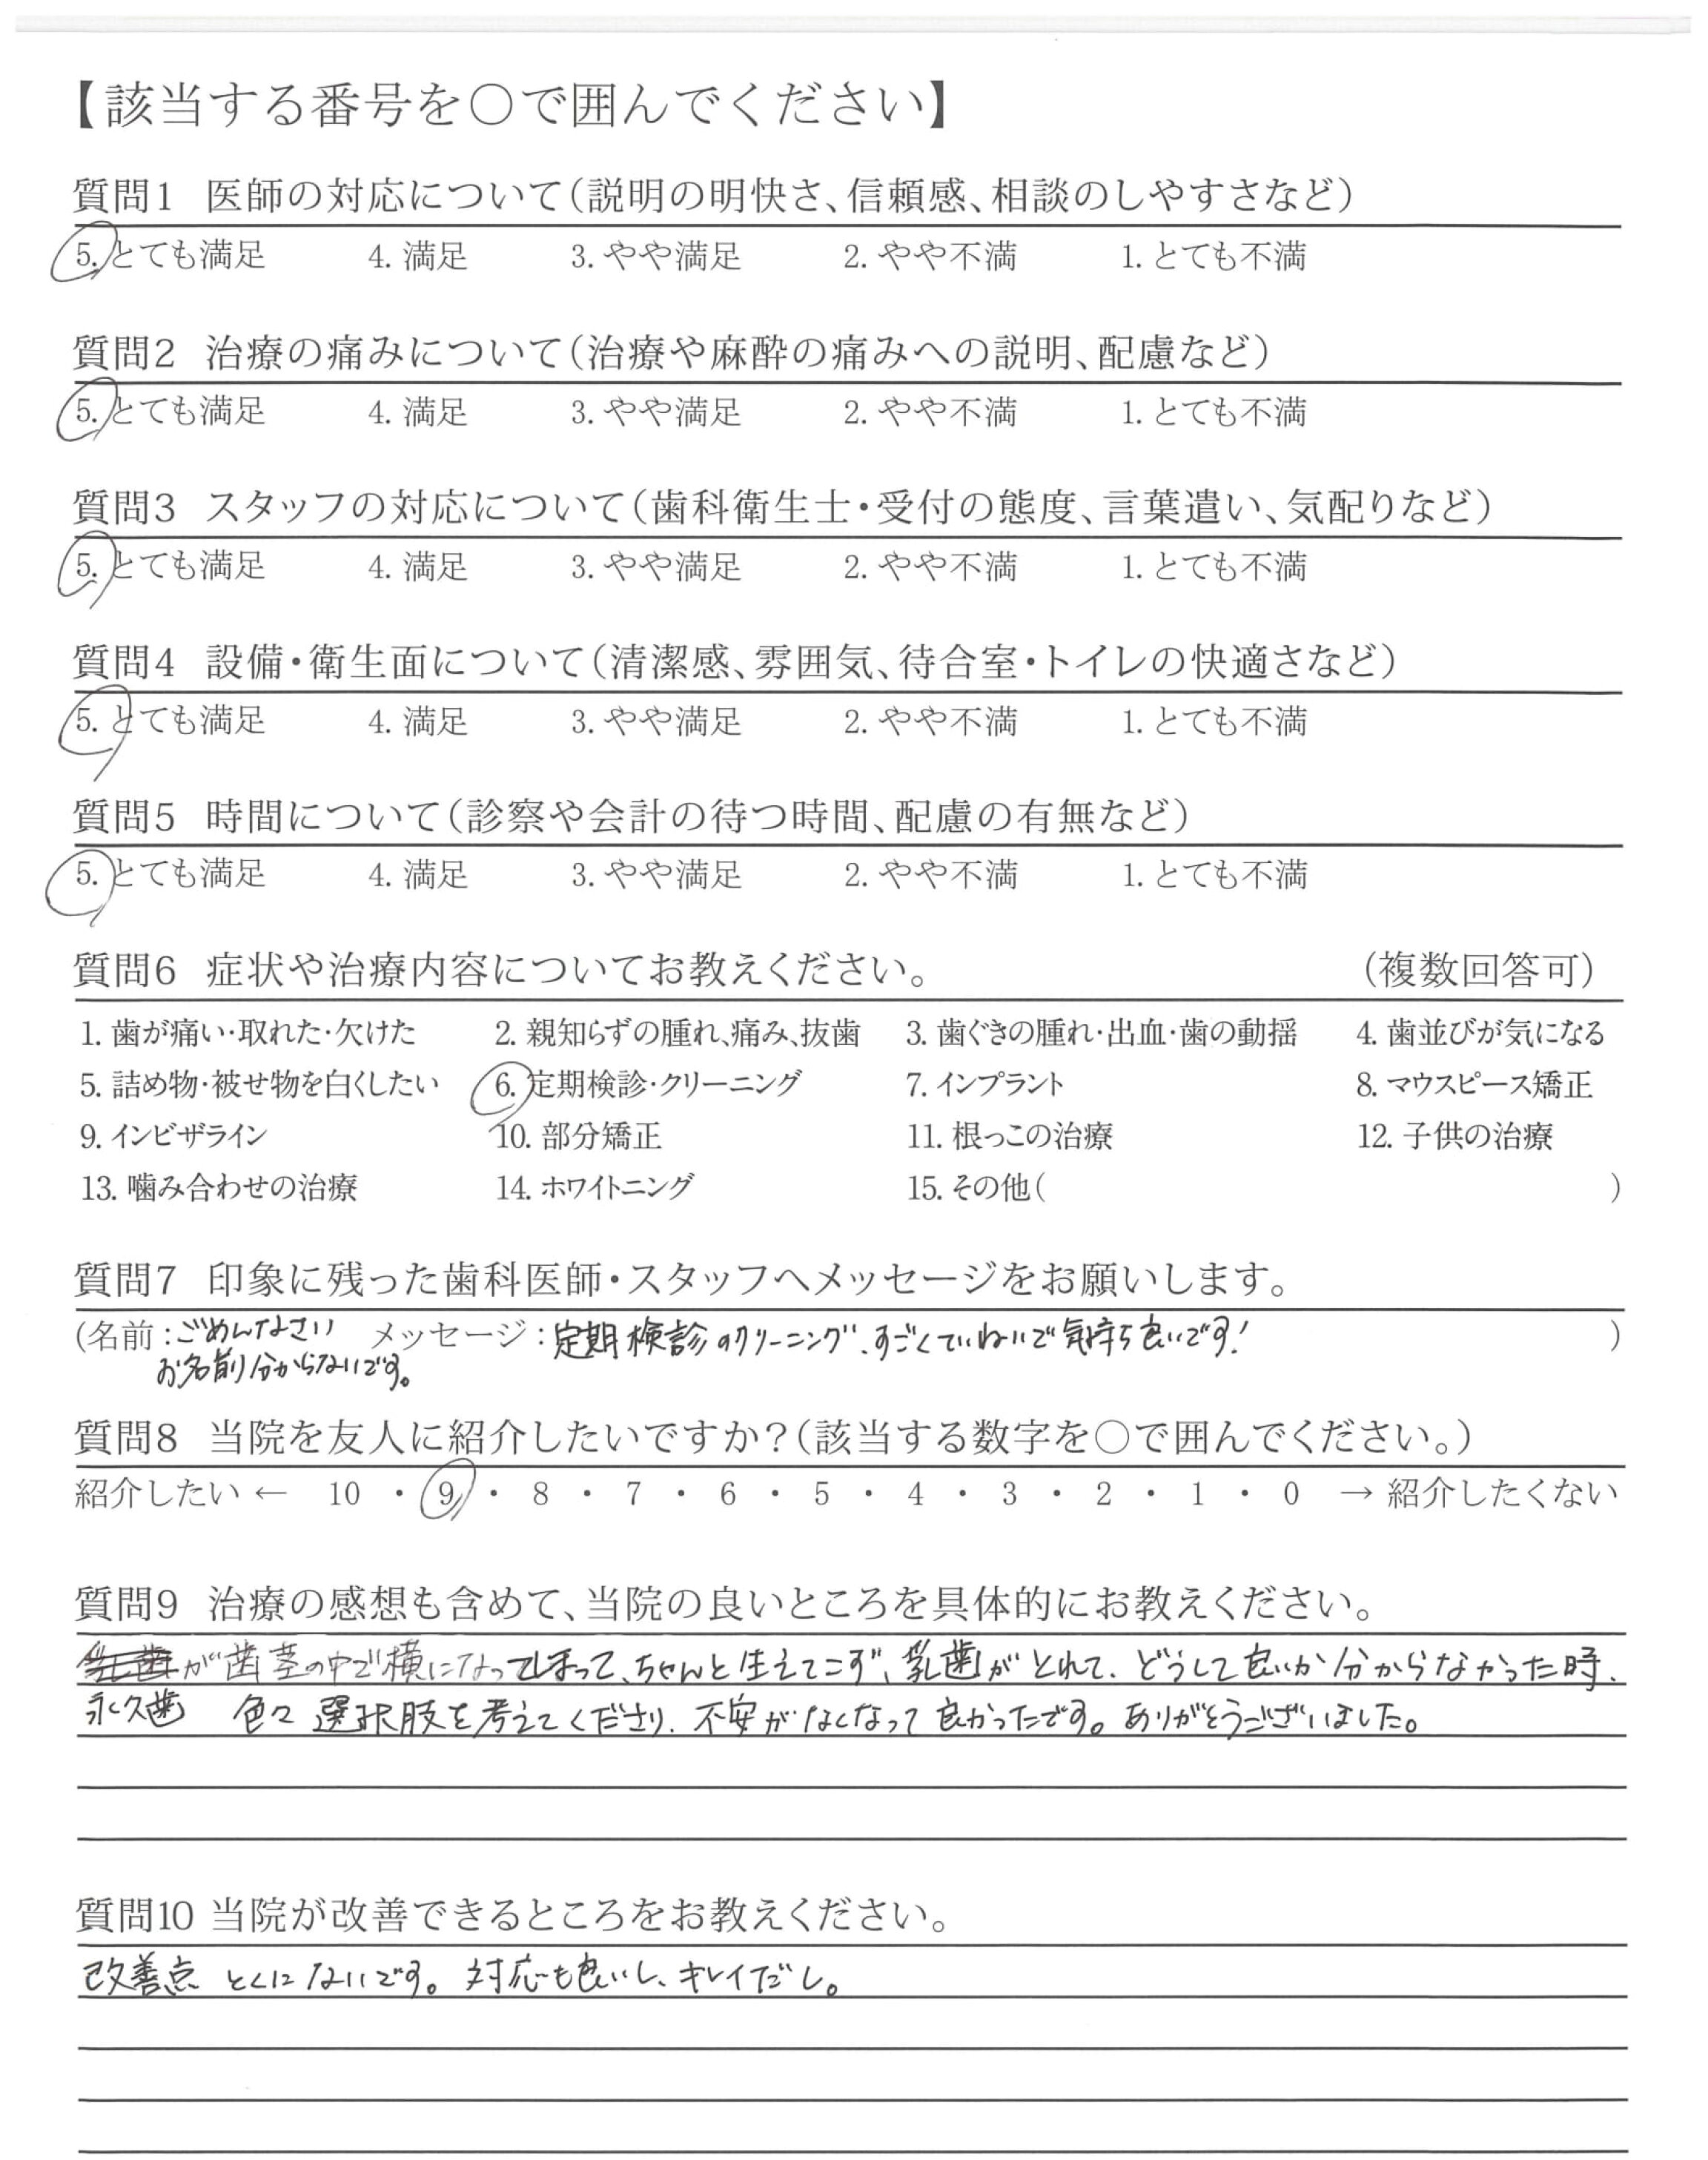 【該当する番号を○で囲んでください】
質問1 医師の対応について（説明の明快さ、信頼感、相談のしやすさなど）
5. とても満足 4. 満足 3. やや満足 2. やや不満 1. とても不満
質問2 治療の痛みについて（治療や麻酔の痛みへの説明、配慮など）
5. とても満足 4. 満足 3. やや満足 2. やや不満 1. とても不満
質問3 スタッフの対応について（歯科衛生士・受付の態度、言葉遣い、気配りなど）
5. とても満足 4. 満足 3. やや満足 2. やや不満 1. とても不満
質問4 設備・衛生面について（清潔感、雰囲気、待合室・トイレの快適さなど）
5. とても満足 4. 満足 3. やや満足 2. やや不満 1. とても不満
質問5 時間について（診察や会計の待つ時間、配慮の有無など）
5. とても満足 4. 満足 3. やや満足 2. やや不満 1. とても不満
質問6 症状や治療内容についてお教えください。 （複数回答可）
1. 歯が痛い・取れた・欠けた 2. 親知らずの腫れ、痛み、抜歯 3. 歯ぐきの腫れ・出血・歯の動揺 4. 歯並びが気になる
5. 詰め物・被せ物を白くしたい 6. 定期検診・クリーニング 7. インプラント 8. マウスピース矯正
9. インビザライン 10. 部分矯正 11. 根っこの治療 12. 子供の治療
13. 噛み合わせの治療 14. ホワイトニング 15. その他（ ）
質問7 印象に残った歯科医師・スタッフへメッセージをお願いします。
（名前：ごめんなさい メッセージ：定期検診のクリーニング、すごくていねいで気持ち良いです！ ）
お名前分からないです。
質問8 当院を友人に紹介したいですか？（該当する数字を○で囲んでください。）
紹介したい ← 10 ・ 9 ・ 8 ・ 7 ・ 6 ・ 5 ・ 4 ・ 3 ・ 2 ・ 1 ・ 0 → 紹介したくない
質問9 治療の感想も含めて、当院の良いところを具体的にお教えください。
乳歯が歯茎の中で横になってしまって、ちゃんと生えてこず、乳歯がとれて、どうして良いか分からなかった時、
永久歯 色々選択肢を考えてくださり、不安がなくなって良かったです。ありがとうございました。
質問10 当院が改善できるところをお教えください。
改善点 とくにないです。対応も良いし、キレイだし。